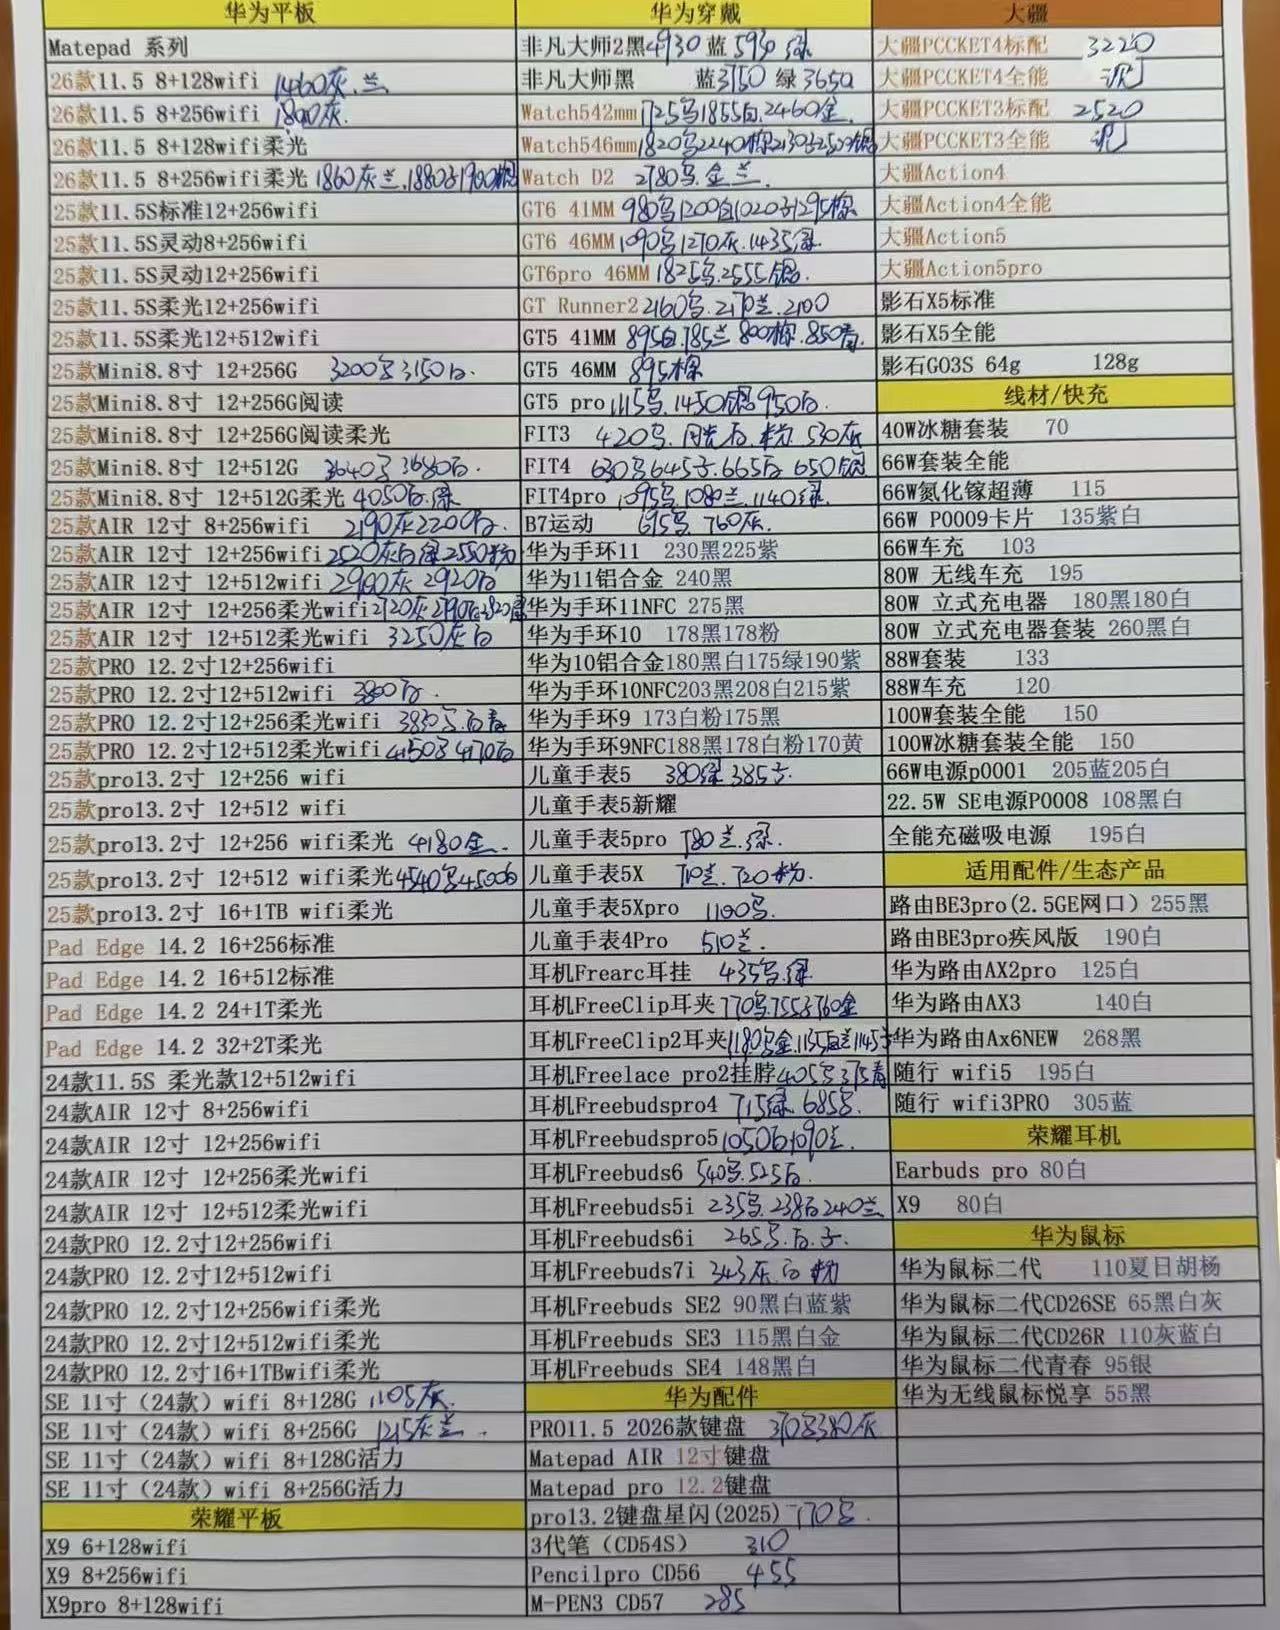 华为平板
Matepad 系列
26款11.5 8+128wifi 1460灰.兰
26款11.5 8+256wifi 1800灰.
26款11.5 8+128wifi柔光
26款11.5 8+256wifi柔光 1860灰兰.1880
25款11.5S标准12+256wifi
25款11.5S灵动8+256wifi
25款11.5S灵动12+256wifi
25款11.5S柔光12+256wifi
25款11.5S柔光12+512wifi
25款Mini8.8寸 12+256G 3200 3150白.
25款Mini8.8寸 12+256G阅读
25款Mini8.8寸 12+256G阅读柔光
25款Mini8.8寸 12+512G 3640 3680白.
25款Mini8.8寸 12+512G柔光 4050白.绿
25款AIR 12寸 8+256wifi 2190灰2200白.
25款AIR 12寸 12+256wifi 2520灰白绿2550粉
25款AIR 12寸 12+512wifi 2900灰 2920白
25款AIR 12寸 12+256柔光wifi 2720灰
25款AIR 12寸 12+512柔光wifi 3250灰白
25款PRO 12.2寸12+256wifi
25款PRO 12.2寸12+512wifi 3800白.
25款PRO 12.2寸12+256柔光wifi 3830.白青
25款PRO 12.2寸12+512柔光wifi 4150 4170白
25款pro13.2寸 12+256 wifi
25款pro13.2寸 12+512 wifi
25款pro13.2寸 12+256 wifi柔光 4180金.
25款pro13.2寸 12+512 wifi柔光 4540 4500白
25款pro13.2寸 16+1TB wifi柔光
Pad Edge 14.2 16+256标准
Pad Edge 14.2 16+512标准
Pad Edge 14.2 24+1T柔光
Pad Edge 14.2 32+2T柔光
24款11.5S 柔光款12+512wifi
24款AIR 12寸 8+256wifi
24款AIR 12寸 12+256wifi
24款AIR 12寸 12+256柔光wifi
24款AIR 12寸 12+512柔光wifi
24款PRO 12.2寸12+256wifi
24款PRO 12.2寸12+512wifi
24款PRO 12.2寸12+256wifi柔光
24款PRO 12.2寸12+512wifi柔光
24款PRO 12.2寸16+1TBwifi柔光
SE 11寸（24款）wifi 8+128G 1105灰.
SE 11寸（24款）wifi 8+256G 1215灰兰.
SE 11寸（24款）wifi 8+128G活力
SE 11寸（24款）wifi 8+256G活力
荣耀平板
X9 6+128wifi
X9 8+256wifi
X9pro 8+128wifi
华为穿戴
非凡大师2黑4930 蓝5930 绿
非凡大师黑 蓝3750 绿3650
Watch542mm 1725 1855白.2460金.
Watch546mm 1820 2240棕2130
Watch D2 2780.金兰.
GT6 41MM 980 1200白1020 1295棕
GT6 46MM 1090 1270灰.1435绿.
GT6pro 46MM 1825.2555
GT Runner2 2160.2170兰.2100
GT5 41MM 895白.785兰 800棕.850青.
GT5 46MM 895棕
GT5 pro 1115.1450 950白.
FIT3 420.月光白.粉.530灰
FIT4 630 645.665白 650
FIT4pro 1095.1080兰.1140绿.
B7运动 695.760灰.
华为手环11 230黑225紫
华为11铝合金 240黑
华为手环11NFC 275黑
华为手环10 178黑178粉
华为10铝合金180黑白175绿190紫
华为手环10NFC203黑208白215紫
华为手环9 173白粉175黑
华为手环9NFC188黑178白粉170黄
儿童手表5 380绿385
儿童手表5新耀
儿童手表5pro 780兰.绿.
儿童手表5X 710兰.720粉.
儿童手表5Xpro 1100.
儿童手表4Pro 510兰.
耳机Frearc耳挂 435.绿.
耳机FreeClip耳夹 770.755 760金
耳机FreeClip2耳夹 1180金.1135白兰1145
耳机Freelace pro2挂脖 405 375青
耳机Freebudspro4 715绿.685.
耳机Freebudspro5 1050白1090兰.
耳机Freebuds6 540.525白.
耳机Freebuds5i 235.238白240兰
耳机Freebuds6i 265.白.
耳机Freebuds7i 343灰.白 粉
耳机Freebuds SE2 90黑白蓝紫
耳机Freebuds SE3 115黑白金
耳机Freebuds SE4 148黑白
华为配件
PRO11.5 2026款键盘 370 380灰
Matepad AIR 12寸键盘
Matepad pro 12.2键盘
pro13.2键盘星闪(2025) 770.
3代笔（CD54S） 310
Pencilpro CD56 455
M-PEN3 CD57 285
大疆
大疆PCCKET4标配 3220
大疆PCCKET4全能
大疆PCCKET3标配 2520
大疆PCCKET3全能
大疆Action4
大疆Action4全能
大疆Action5
大疆Action5pro
影石X5标准
影石X5全能
影石GO3S 64g 128g
线材/快充
40W冰糖套装 70
66W套装全能
66W氮化镓超薄 115
66W P0009卡片 135紫白
66W车充 103
80W 无线车充 195
80W 立式充电器 180黑180白
80W 立式充电器套装 260黑白
88W套装 133
88W车充 120
100W套装全能 150
100W冰糖套装全能 150
66W电源p0001 205蓝205白
22.5W SE电源P0008 108黑白
全能充磁吸电源 195白
适用配件/生态产品
路由BE3pro(2.5GE网口）255黑
路由BE3pro疾风版 190白
华为路由AX2pro 125白
华为路由AX3 140白
华为路由Ax6NEW 268黑
随行 wifi5 195白
随行 wifi3PRO 305蓝
荣耀耳机
Earbuds pro 80白
X9 80白
华为鼠标
华为鼠标二代 110夏日胡杨
华为鼠标二代CD26SE 65黑白灰
华为鼠标二代CD26R 110灰蓝白
华为鼠标二代青春 95银
华为无线鼠标悦享 55黑